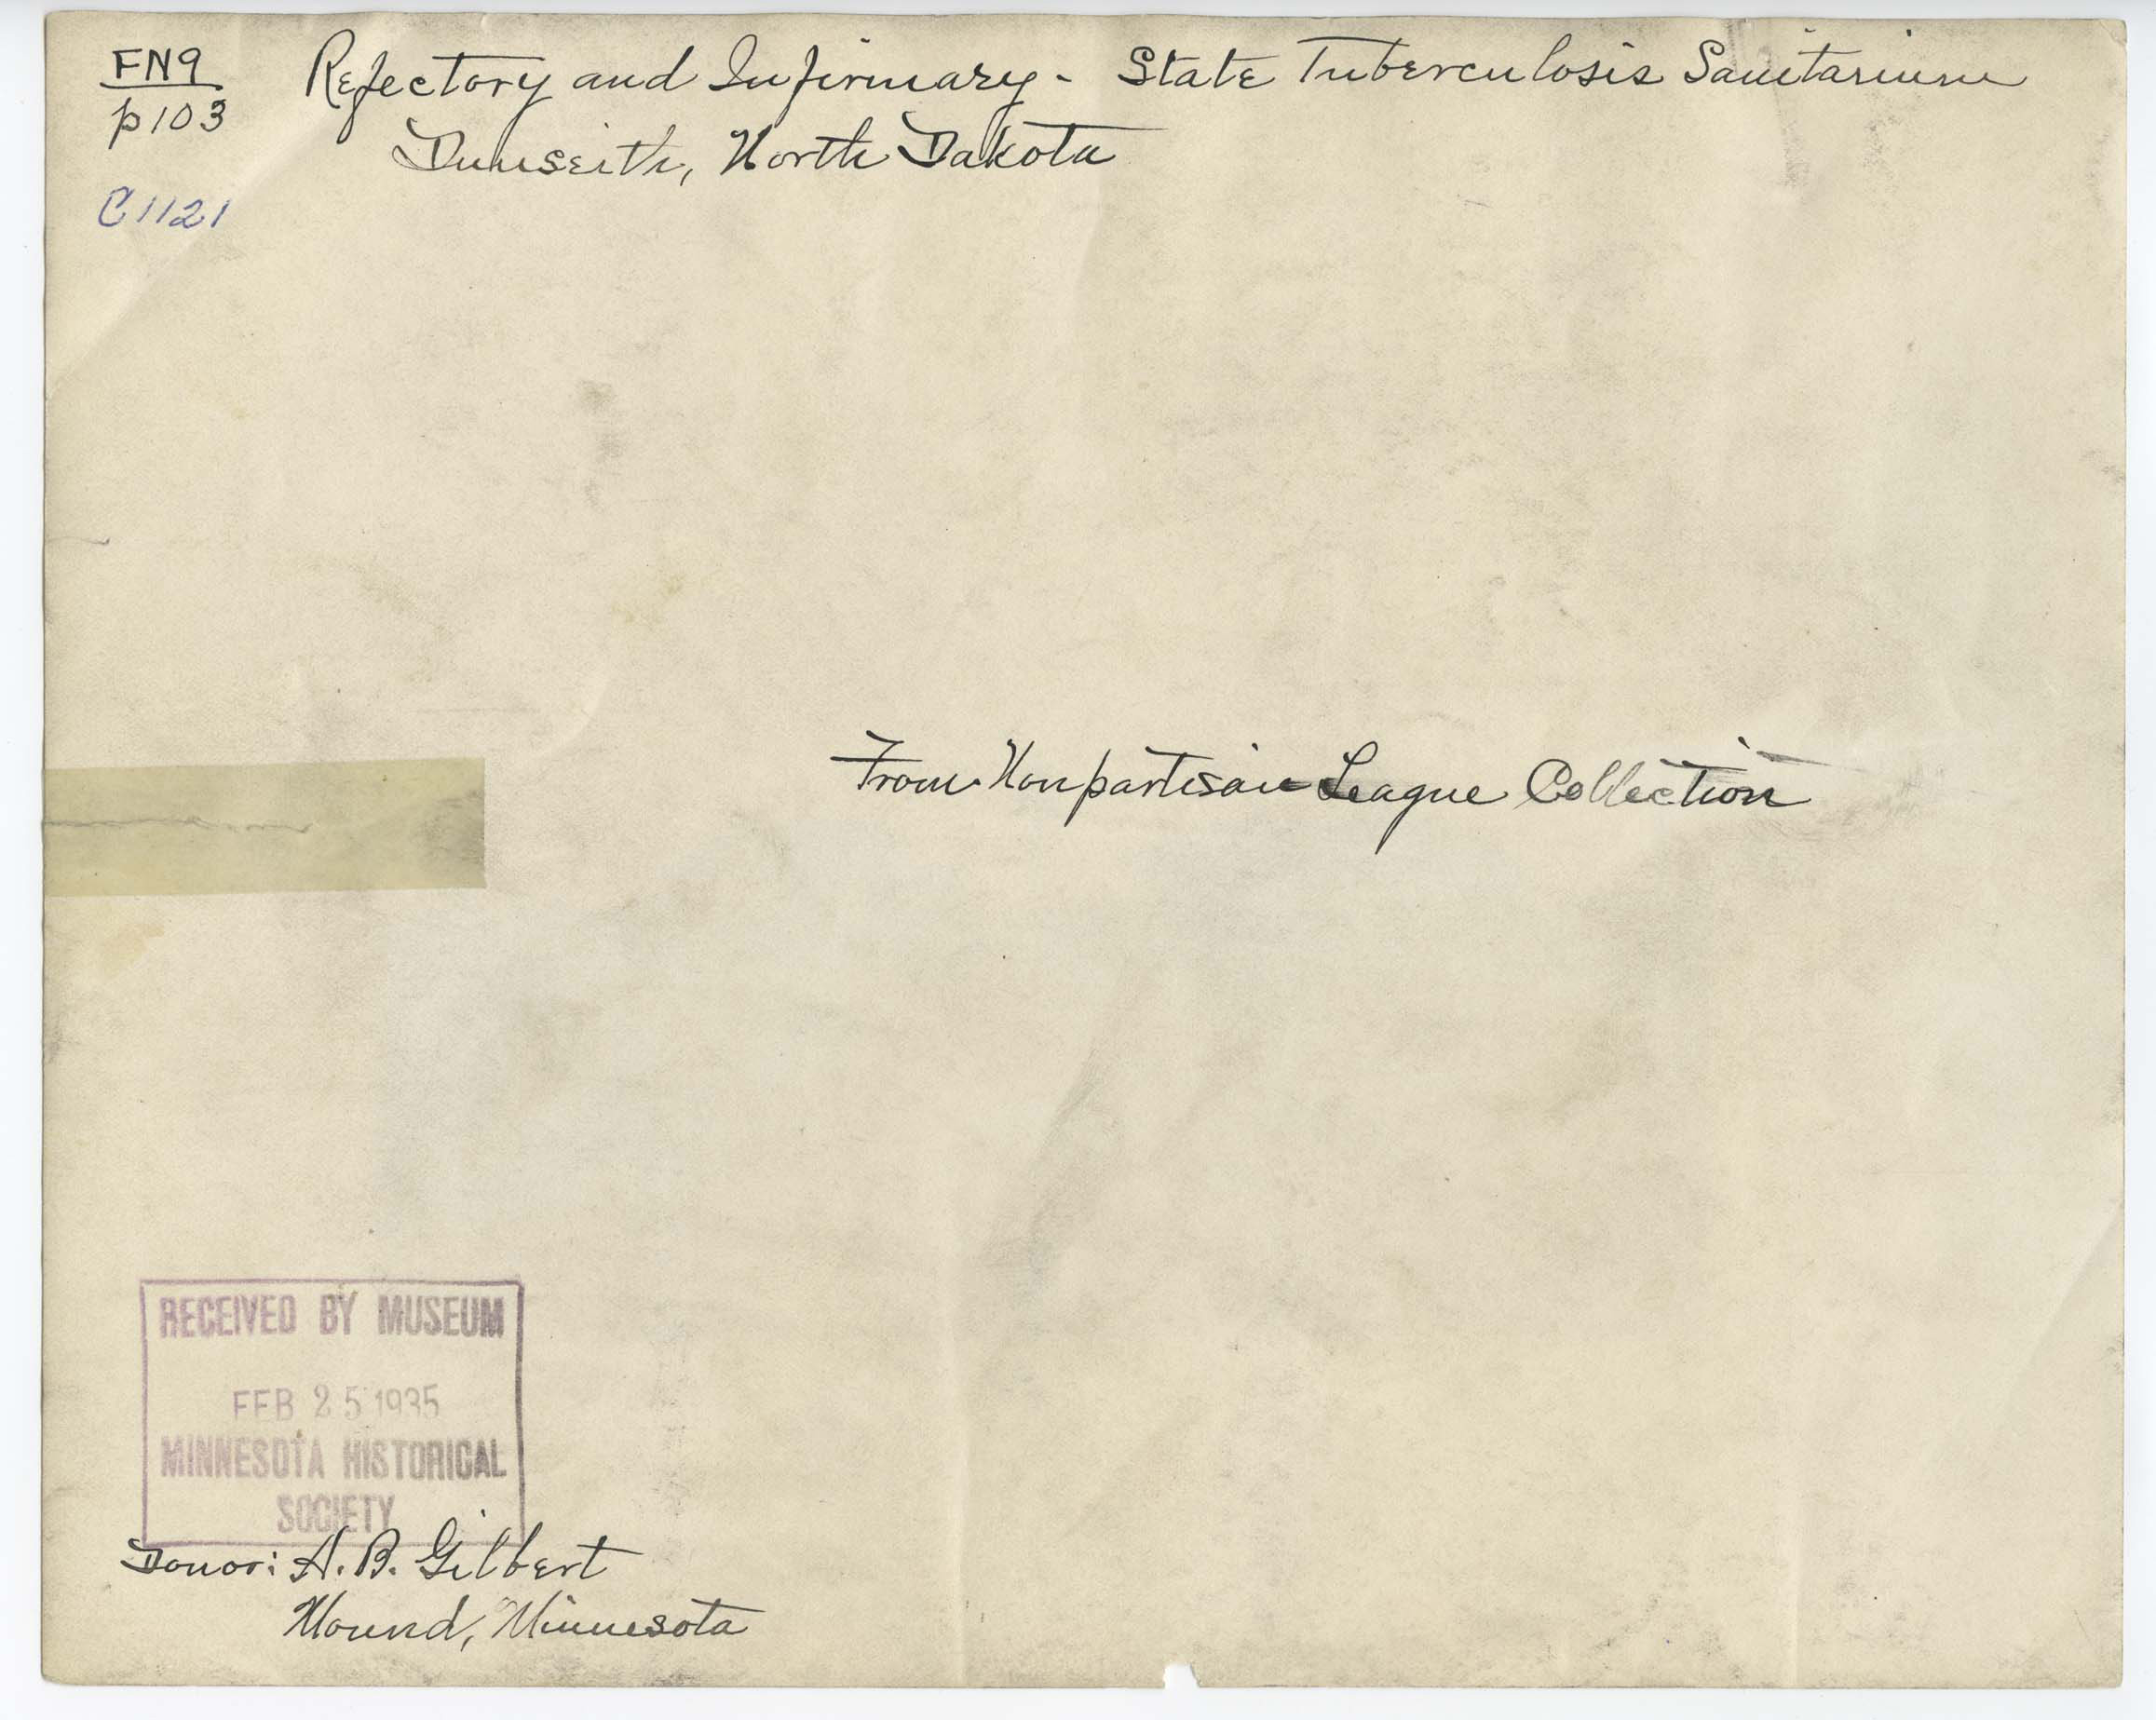 FN9 Refectory and Infirmary - State Tuberculosis Sanitarium
p103 Dunseith, North Dakota
C1121
From Nonpartisan League Collection
RECEIVED BY MUSEUM
FEB 25 1935
MINNESOTA HISTORICAL
SOCIETY
Donor: A. B. Gilbert
Mound, Minnesota